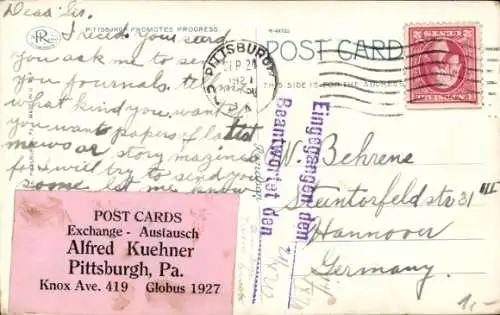 Dear Sir.
PITTSBURGH PROMOTES PROGRESS.
I recd. your card
you ask me to send
you journals, tell
what kind you want,
you want papers of latest
news or story mazines
for will try to send you
some let me know
POST CARDS
Exchange - Austausch
Alfred Kuehner
Pittsburgh, Pa.
Knox Ave. 419 Globus 1927
PITTSBURGH
SEP 24
1921
PA
POST CARD
THIS SIDE IS FOR THE ADDRESS
Eingegangen den
Beantwortet den
W. Behrene
Steintorfeldstr 31 III
Hannover
Germany.
1,-